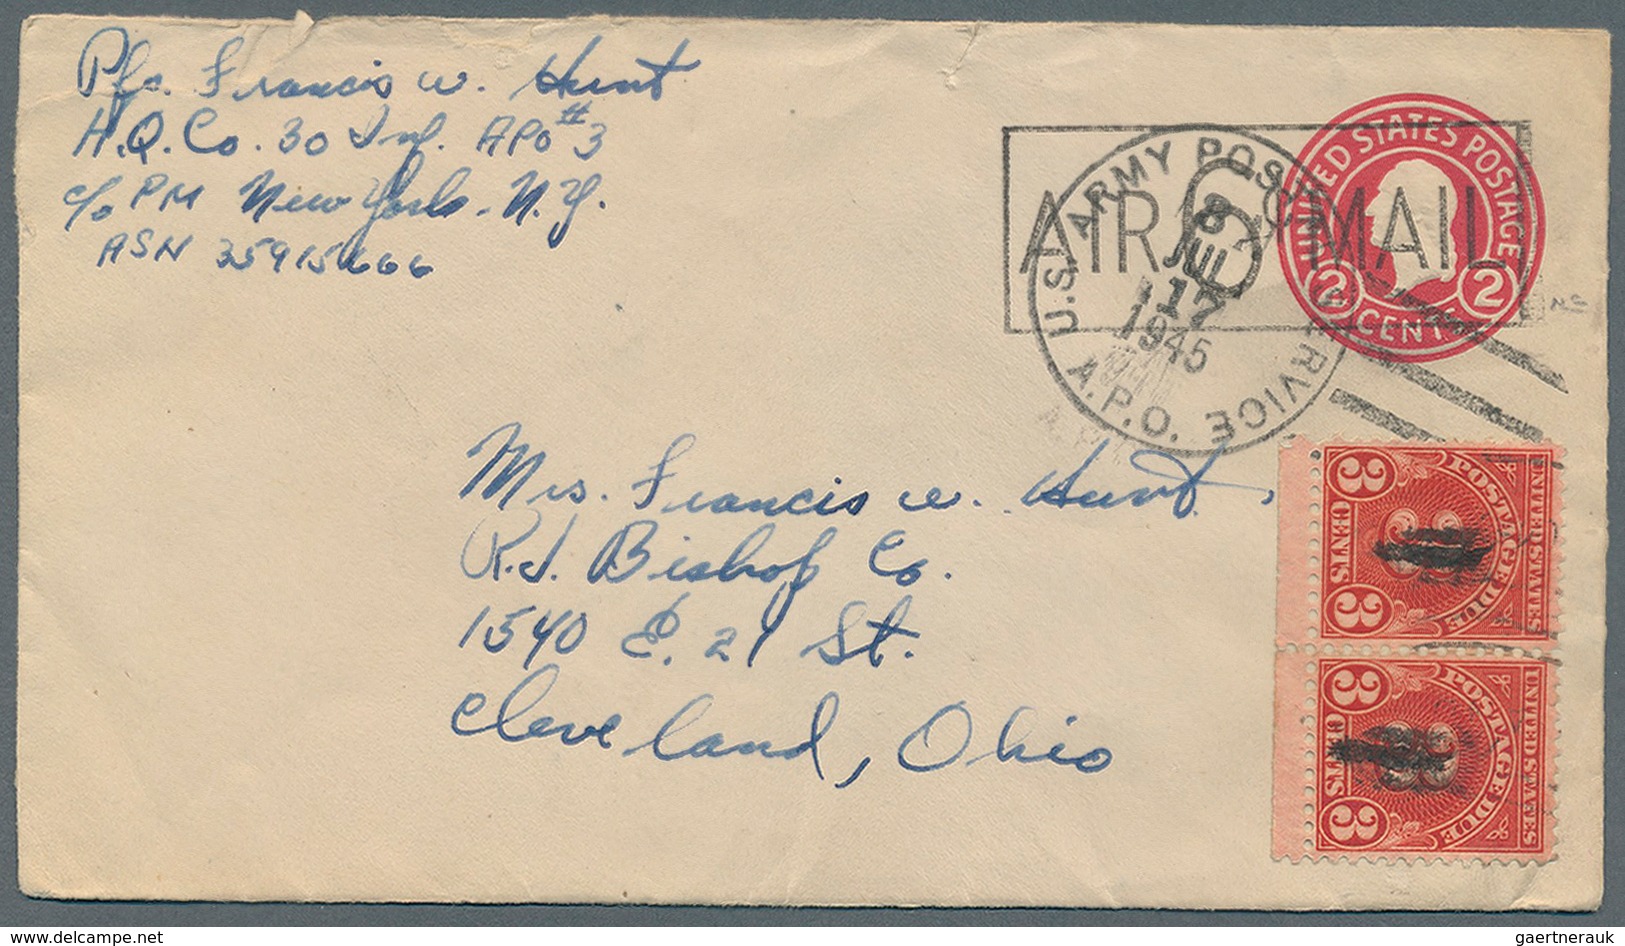 Pfc. Francis W. Hunt
H.Q. Co. 30 Inf. APO #3
c/o PM New York. N.Y.
ASN 35915666
U.S. ARMY POSTAL SERVICE
A.P.O.
JUL
17
1945
AIR MAIL
6
UNITED STATES POSTAGE
2 CENTS 2
Mrs. Francis W. Hunt,
R.J. Bishop Co.
1540 E. 21 St.
Cleveland, Ohio
UNITED STATES
POSTAGE DUE
3 CENTS 3
UNITED STATES
POSTAGE DUE
3 CENTS 3
www.delcampe.net
gaertnerauk